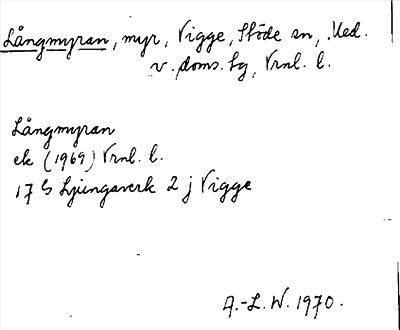 Långmyran, myr, Vigge, Stöde sn, Med.
v. doms. sg, Vrnl. l.
Långmyran
ek (1969) Vrnl. l.
17 G Ljungaverk 2 j Vigge
A.-L. W. 1970.